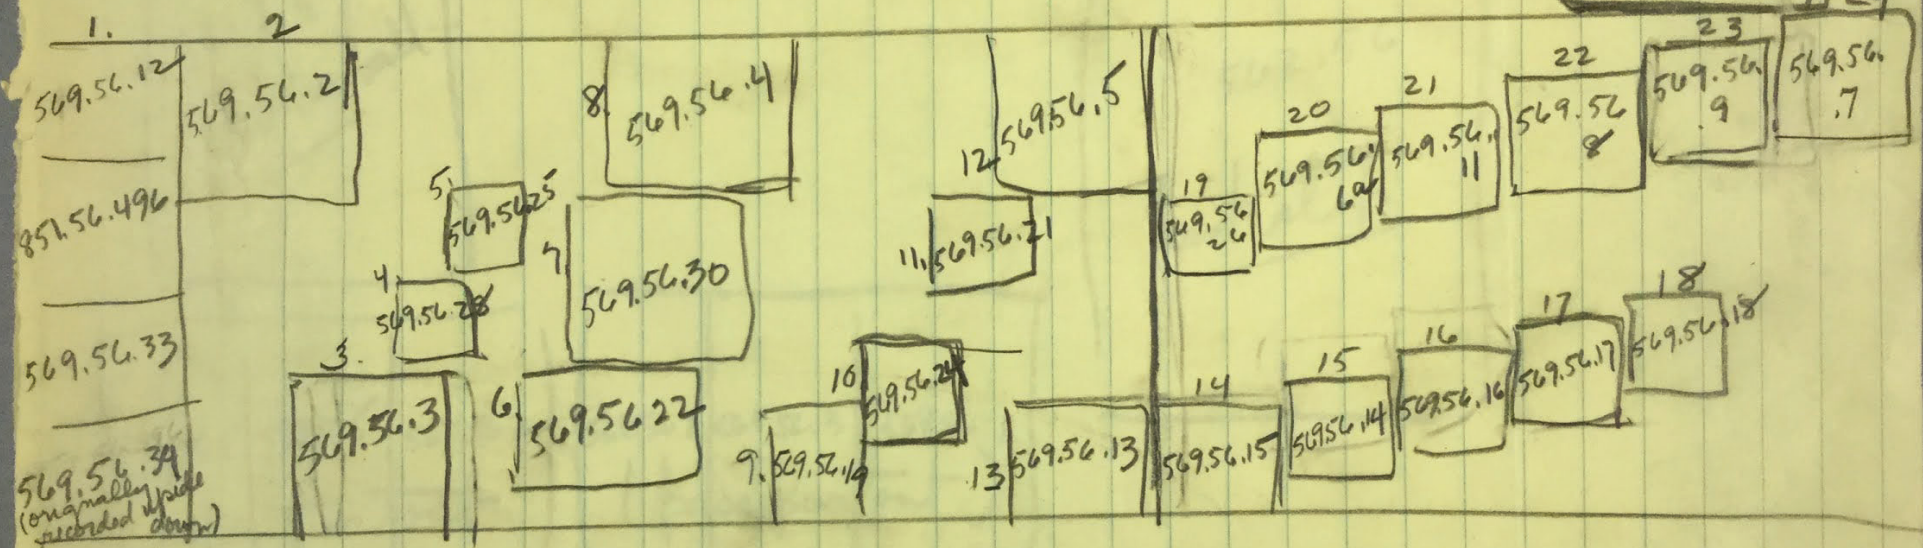 1.
2
569.56.12
851.56.496
569.56.33
569.56.34
(originally
recorded upside
down)
569.56.2
3.
569.56.3
4.
569.56.28
5.
569.56.25
6.
569.56.22
7.
569.56.30
8.
569.56.4
9.
569.56.19
10
569.56.24
11.
569.56.21
12
569.56.5
13
569.56.13
14
569.56.15
15
569.56.14
16
569.56.16
17
569.56.17
18
569.56.18
19
569.56
26
20
569.56.
6a
21
569.56.
11
22
569.56
8
23
569.56.
.9
569.56.
.7